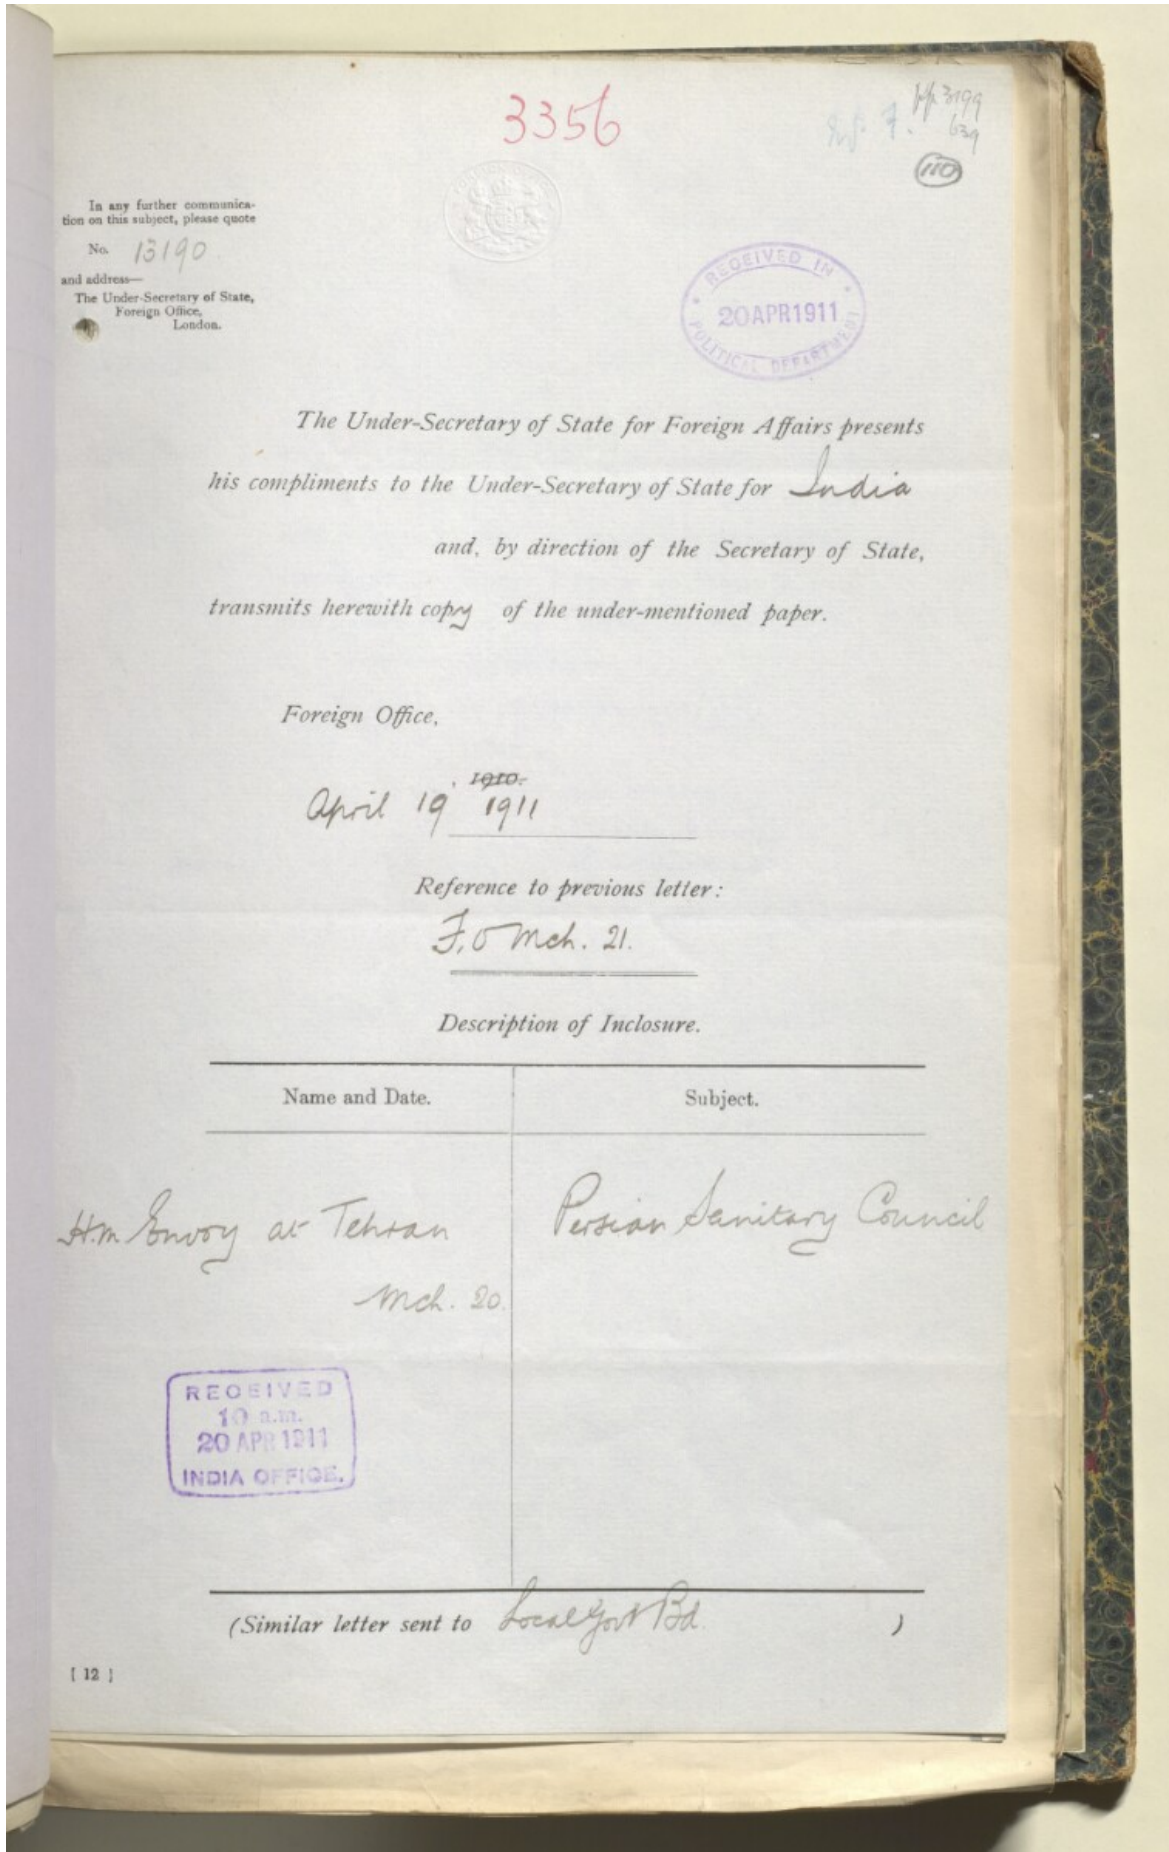 3356
3199
639
110
In any further communica-
tion on this subject, please quote
No. 13190
and address—
The Under-Secretary of State,
Foreign Office,
London.
RECEIVED IN
20 APR 1911
POLITICAL DEPARTMENT
The Under-Secretary of State for Foreign Affairs presents
his compliments to the Under-Secretary of State for India
and, by direction of the Secretary of State,
transmits herewith copy of the under-mentioned paper.
Foreign Office,
1910.
April 19 1911
Reference to previous letter:
F.O Mch. 21.
Description of Inclosure.
Name and Date.
Subject.
H.M. Envoy at Tehran
Persian Sanitary Council
Mch. 20.
RECEIVED
10 a.m.
20 APR 1911
INDIA OFFICE.
(Similar letter sent to Local Govt Bd. )
[ 12 ]